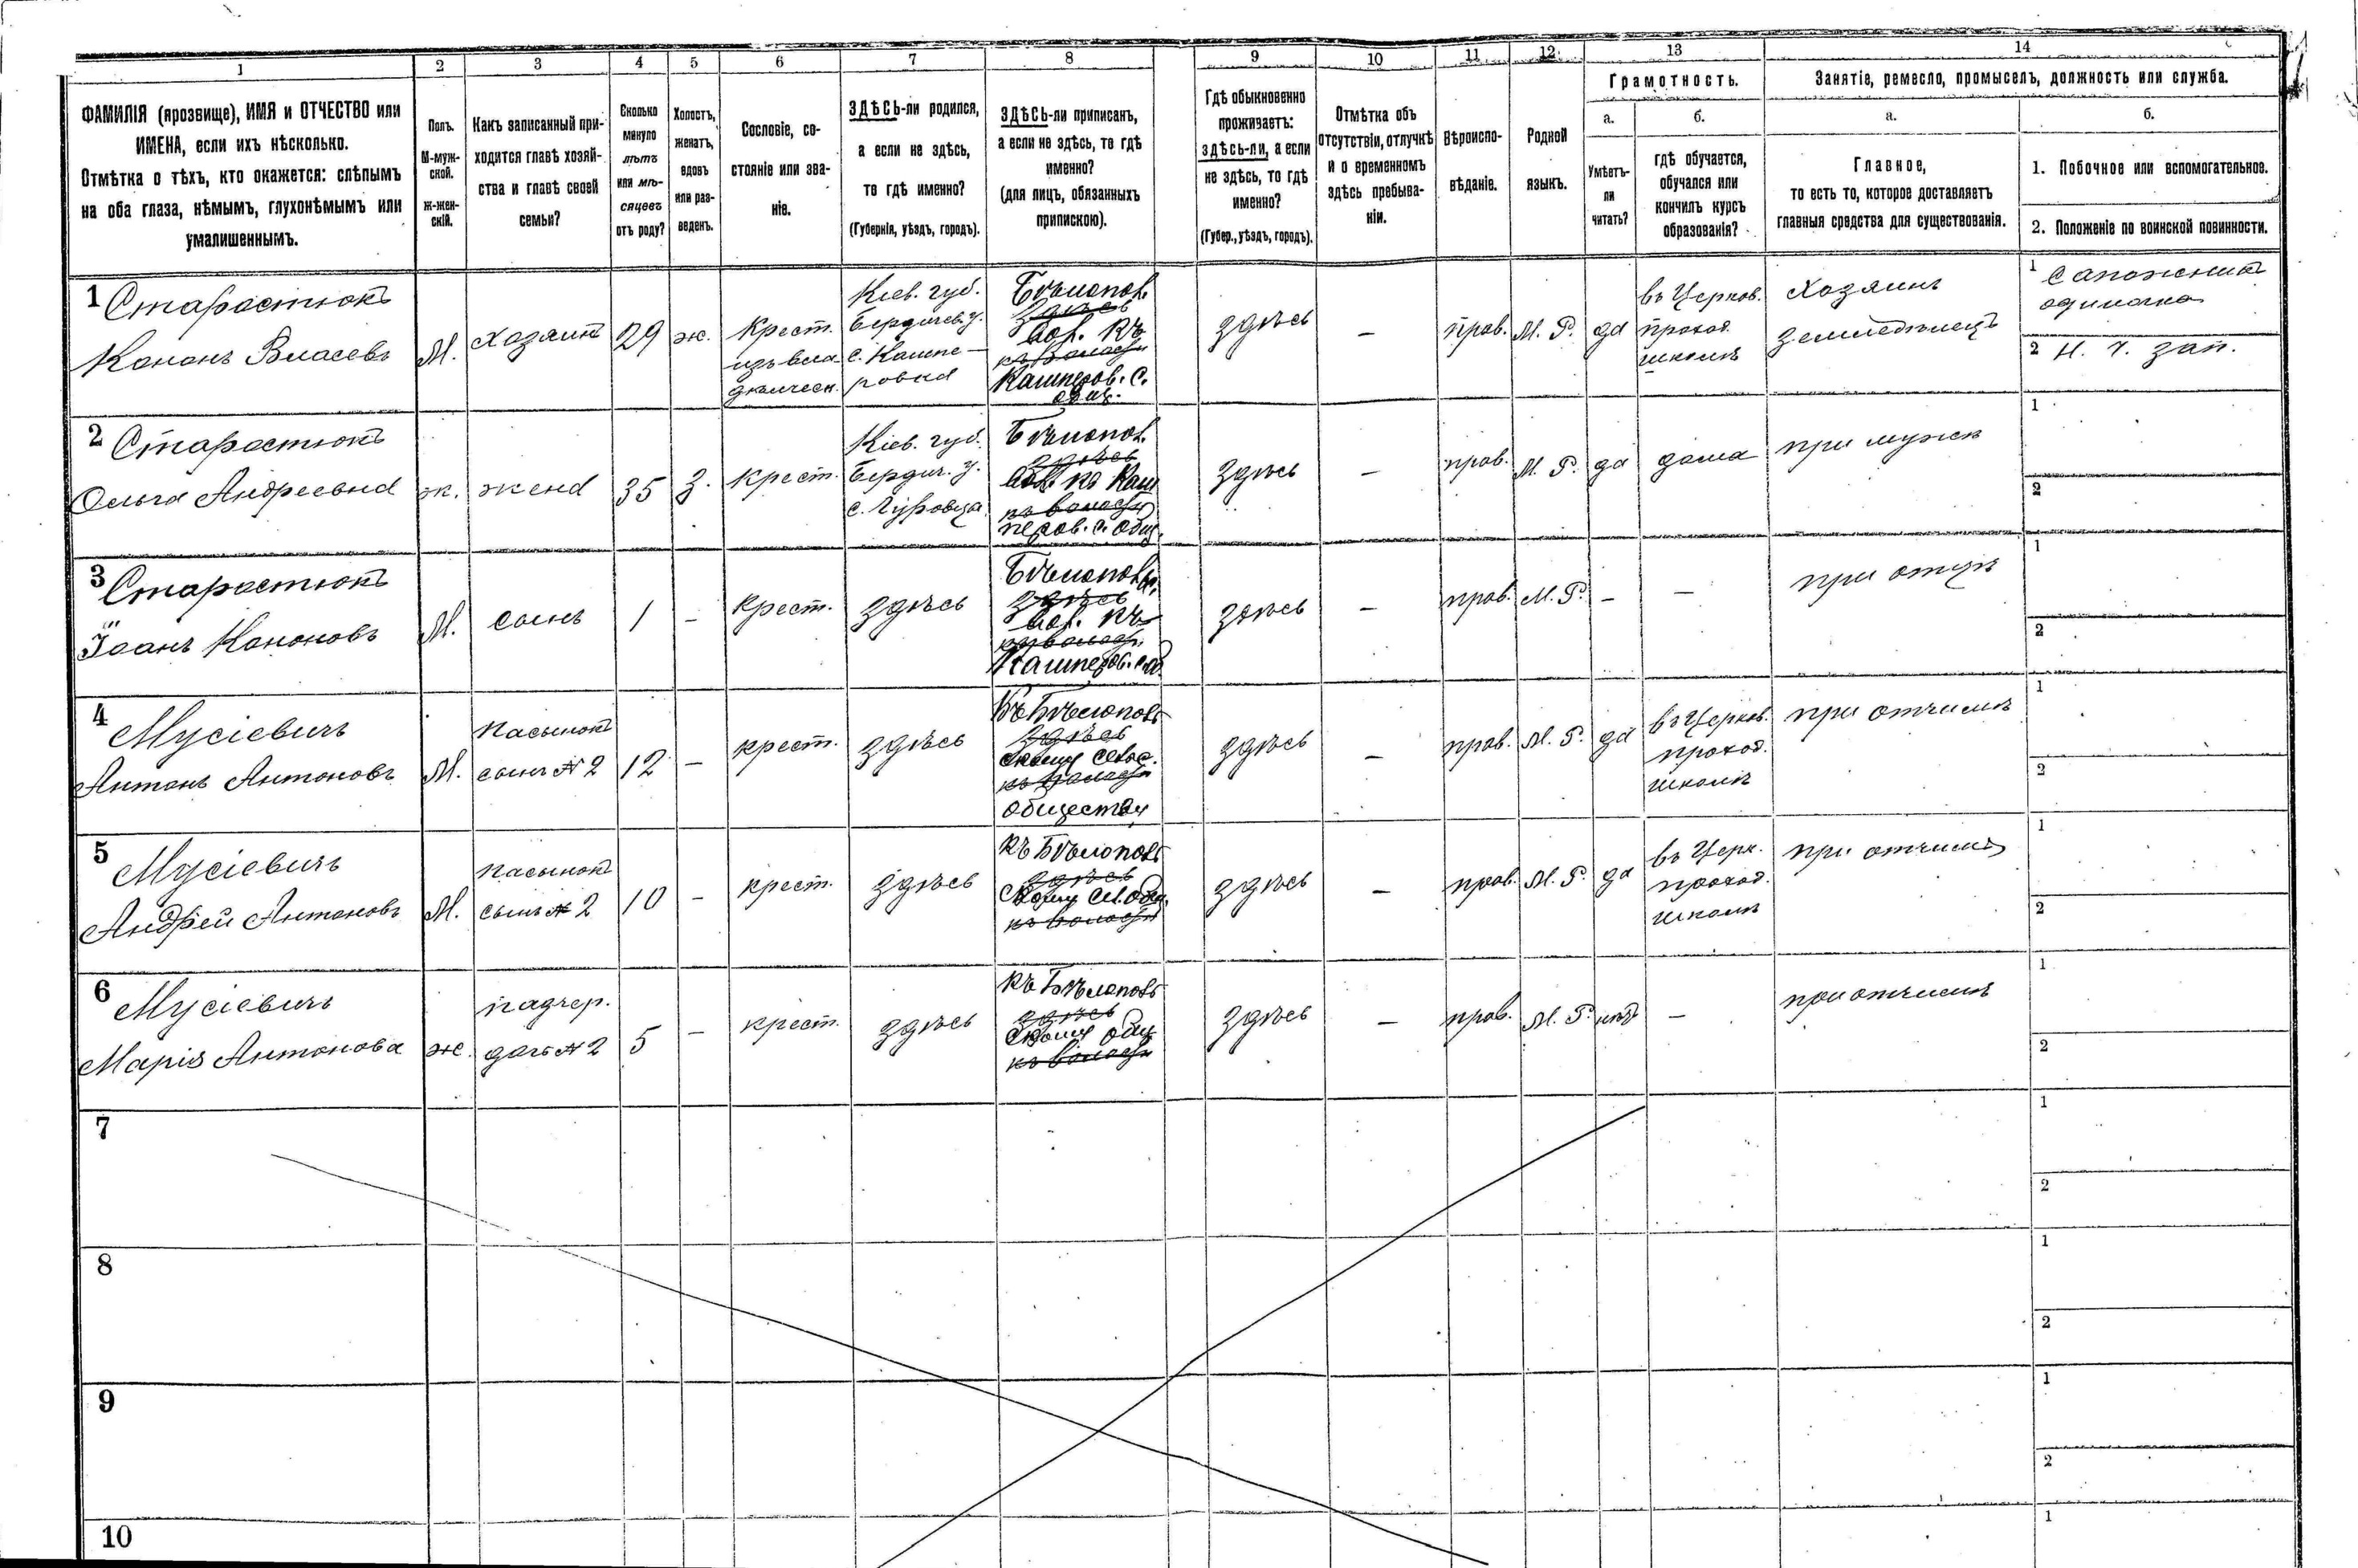 1 2 3 4 5 6 7 8 9 10 11 12 13 14
ФАМИЛІЯ (прозвище), ИМЯ и ОТЧЕСТВО или
ИМЕНА, если ихъ нѣсколько.
Отмѣтка о тѣхъ, кто окажется: слѣпымъ
на оба глаза, нѣмымъ, глухонѣмымъ или
умалишеннымъ.
Полъ.
М-муж-
ской.
ж-жен-
скій.
Какъ записанный при-
ходится главѣ хозяй-
ства и главѣ своей
семьи?
Сколько
минуло
лѣтъ
или мѣ-
сяцевъ
отъ роду?
Холостъ,
женатъ,
вдовъ
или раз-
веденъ.
Сословіе, со-
стояніе или зва-
ніе.
ЗДѢСЬ-ли родился,
а если не здѣсь,
то гдѣ именно?
(Губернія, уѣздъ, городъ).
ЗДѢСЬ-ли приписанъ,
а если не здѣсь, то гдѣ
именно?
(для лицъ, обязанныхъ
припискою).
Гдѣ обыкновенно
проживаетъ:
здѣсь-ли, а если
не здѣсь, то гдѣ
именно?
(Губер., уѣздъ, городъ).
Отмѣтка объ
отсутствіи, отлучкѣ
и о временномъ
здѣсь пребыва-
ніи.
Вѣроиспо-
вѣданіе.
Родной
языкъ.
Грамотность.
а.
Умѣетъ-
ли
читать?
б.
гдѣ обучается,
обучался или
кончилъ курсъ
образованія?
Занятіе, ремесло, промыселъ, должность или служба.
а.
Главное,
то есть то, которое доставляетъ
главныя средства для существованія.
б.
1. Побочное или вспомогательное.
2. Положеніе по воинской повинности.
1 Старостюкъ
Кононъ Власовъ
М.
хозяинъ
29
ж.
Крест.
изъ вла
дѣльческ.
Кіев. губ.
Бердичев. у.
с. Кашпе-
ровка
Бѣлопол.
здѣсь
вол. къ
къ волости
Кашперов. с.
общ.
здѣсь
–
прав.
М. Р.
да
въ Церков.
приход.
школѣ
Хозяинъ
земледѣлецъ
1 Сапожникъ
одиночка
2 Н. ч. зап.
2 Старостюкъ
Ольга Андреевна
ж.
жена
35
З.
крест.
Кіев. губ.
Бердич. у.
с.
Бѣлопол.
здѣсь
вол. къ Каш
къ волости
перов. с. общ.
здѣсь
–
прав.
М. Р.
да
дома
при мужѣ
1
2
3 Старостюкъ
Іоанъ Кононовъ
М.
сынъ
1
–
крест.
здѣсь
Бѣлопол.
здѣсь
вол. къ
къ волости
Кашперов. с. об.
здѣсь
–
прав.
М. Р.
–
–
при отцѣ
1
2
4 Мусіевичъ
Антонъ Антоновъ
М.
пасынокъ
сынъ № 2
12
–
крест.
здѣсь
Къ Бѣлопол
здѣсь
скому сельс.
къ волости
обществу
здѣсь
–
прав.
М. Р.
да
въ Церков.
приход.
школѣ
при отчимѣ
1
2
5 Мусіевичъ
Андрей Антоновъ
М.
пасынокъ
сынъ № 2
10
–
крест.
здѣсь
къ Бѣлопол
здѣсь
скому сел. общ.
къ волости
здѣсь
–
прав.
М. Р.
да
въ Церк.
приход.
школѣ
при отчимѣ
1
2
6 Мусіевичъ
Марія Антонова
ж.
падчер.
дочь № 2
5
–
крест.
здѣсь
къ Бѣлопол
здѣсь
скому общ
къ волости
здѣсь
–
прав.
М. Р.
нѣт
–
при отчимѣ
1
2
7
1
2
8
1
2
9
1
2
10
1